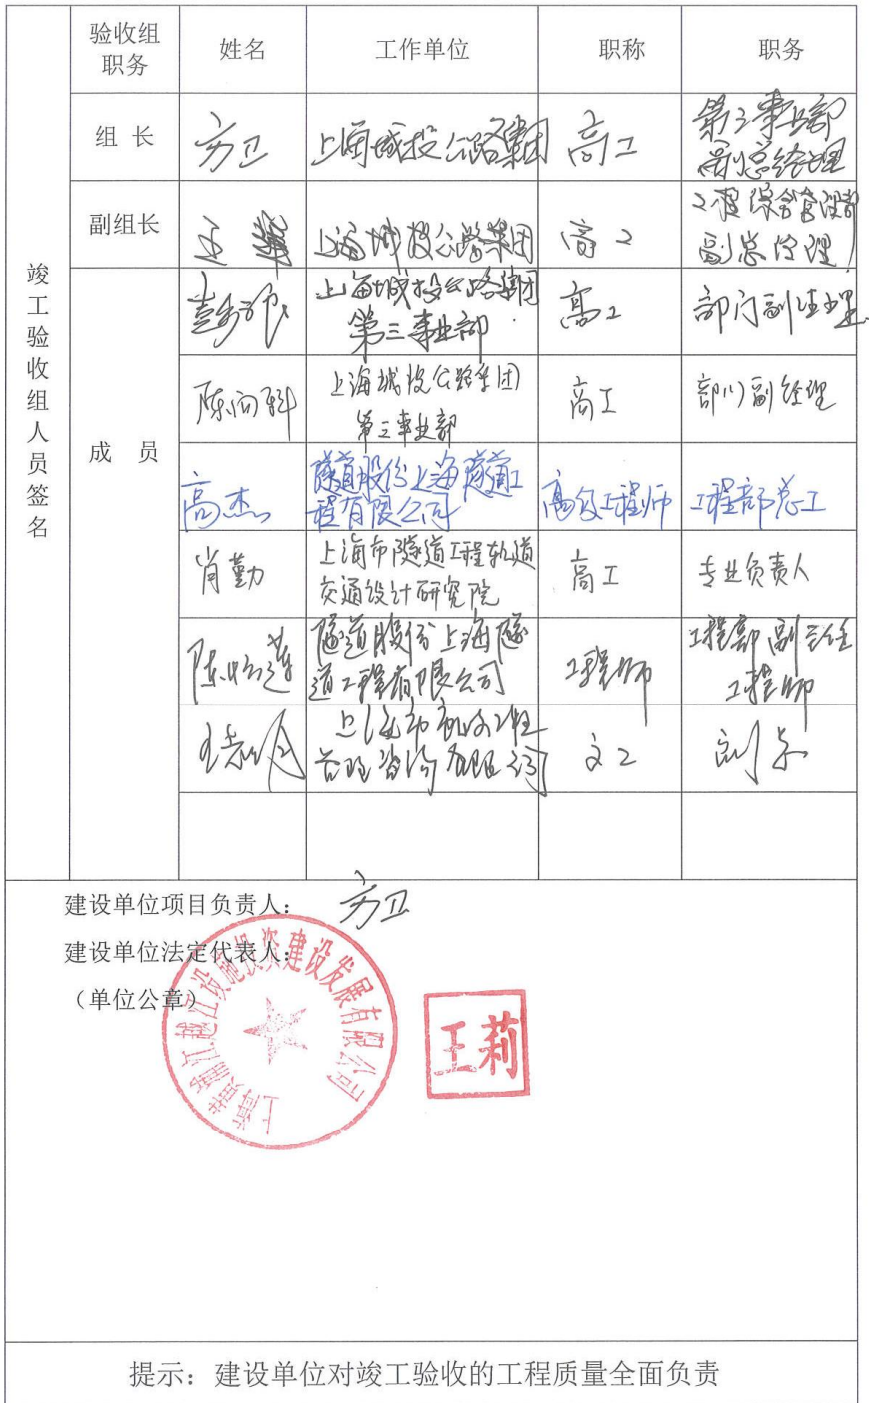 竣工验收组人员签名
验收组
职务
姓名
工作单位
职称
职务
组 长
方卫
上海城投公路集团
高工
第三事业部
副总经理
副组长
王
上海城投公路集团
高工
工程综合管理部
副总经理
成 员
上海城投公路集团
第三事业部
高工
部门副经理
陈向科
上海城投公路集团
第三事业部
高工
部门副经理
高杰
隧道股份上海隧道工
程有限公司
高级工程师
工程部总工
肖勤
上海市隧道工程轨道
交通设计研究院
高工
专业负责人
陈 莲
隧道股份上海隧
道工程有限公司
工程师
工程部副主任
工程师
王
上海市 工程
咨询有限公司
建设单位项目负责人:
方卫
建设单位法定代表人:
(单位公章)
上海黄浦江越江设施投资建设发展有限公司
王莉
提示:建设单位对竣工验收的工程质量全面负责